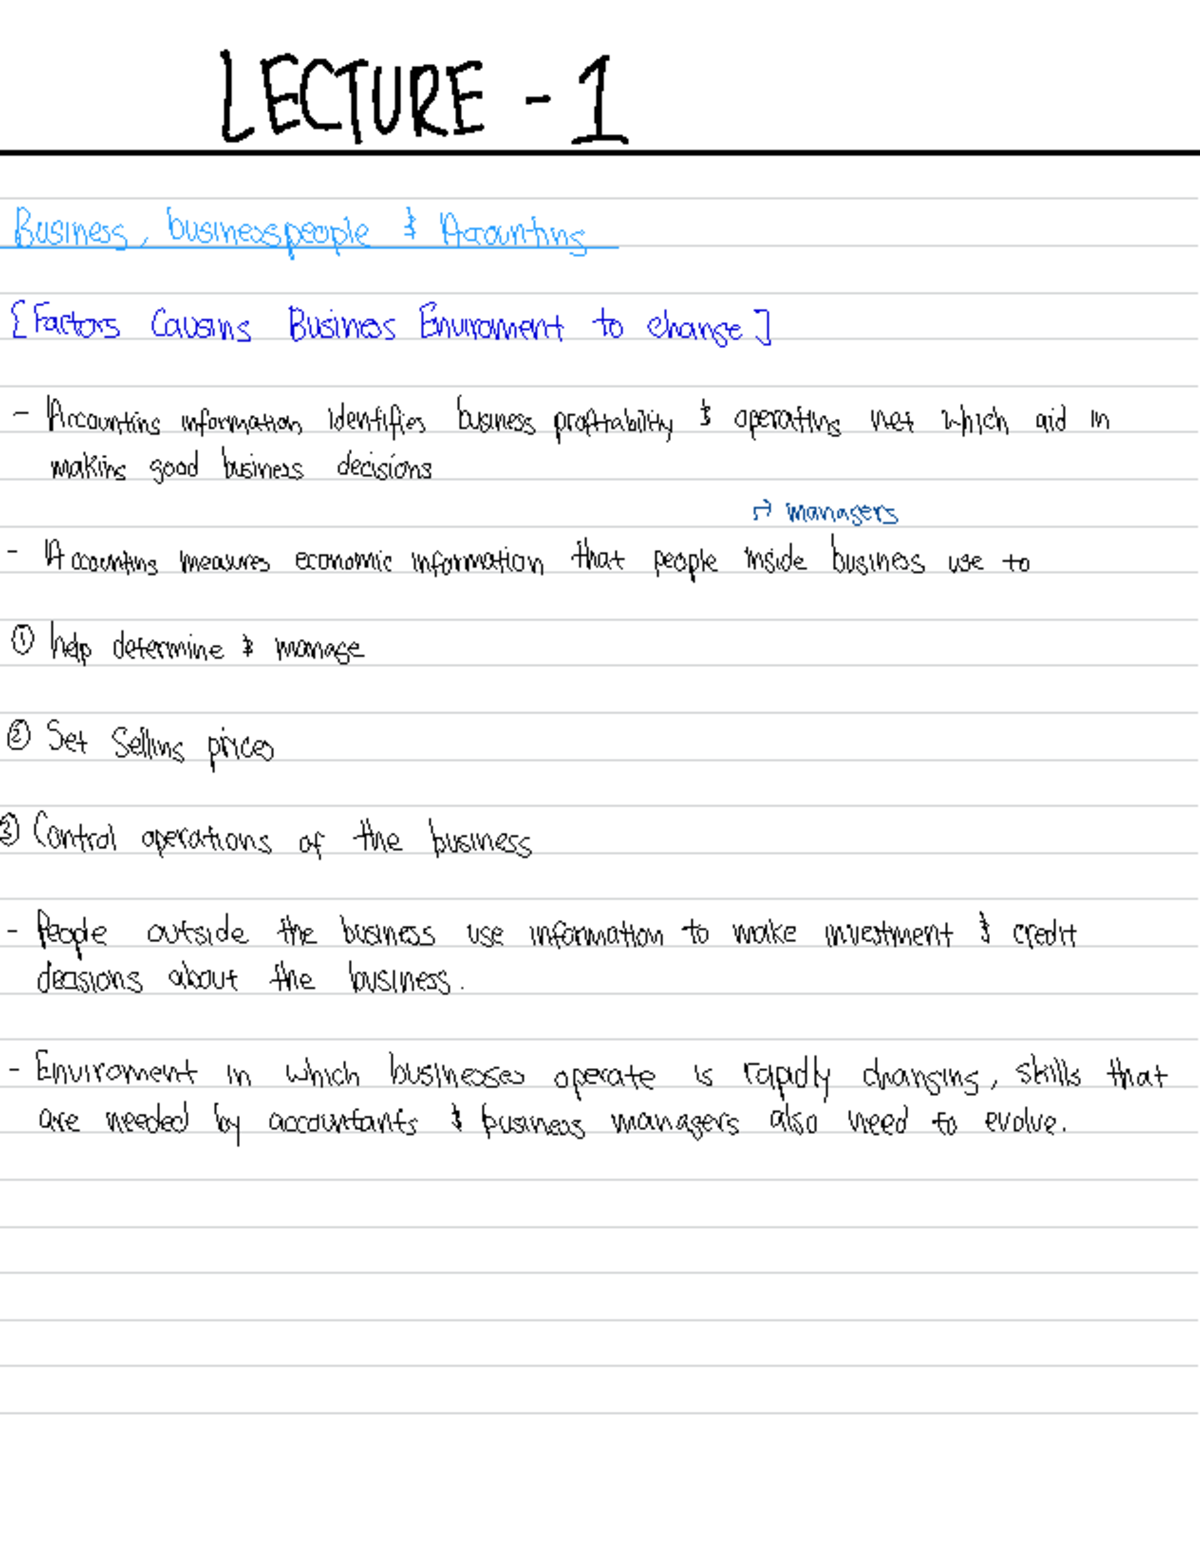 LECTURE - 1
Business, businesspeople & Accounting
[Factors Causing Business Enviroment to change]
- Accounting information identifies business profitability & operating net which aid in
making good business decisions
→ managers
- Accounting measures economic information that people inside business use to
① help determine & manage
② Set Selling prices
③ Control operations of the business
- People outside the business use information to make investment & credit
decisions about the business.
- Enviroment in which businesses operate is rapidly changing, skills that
are needed by accountants & business managers also need to evolve.